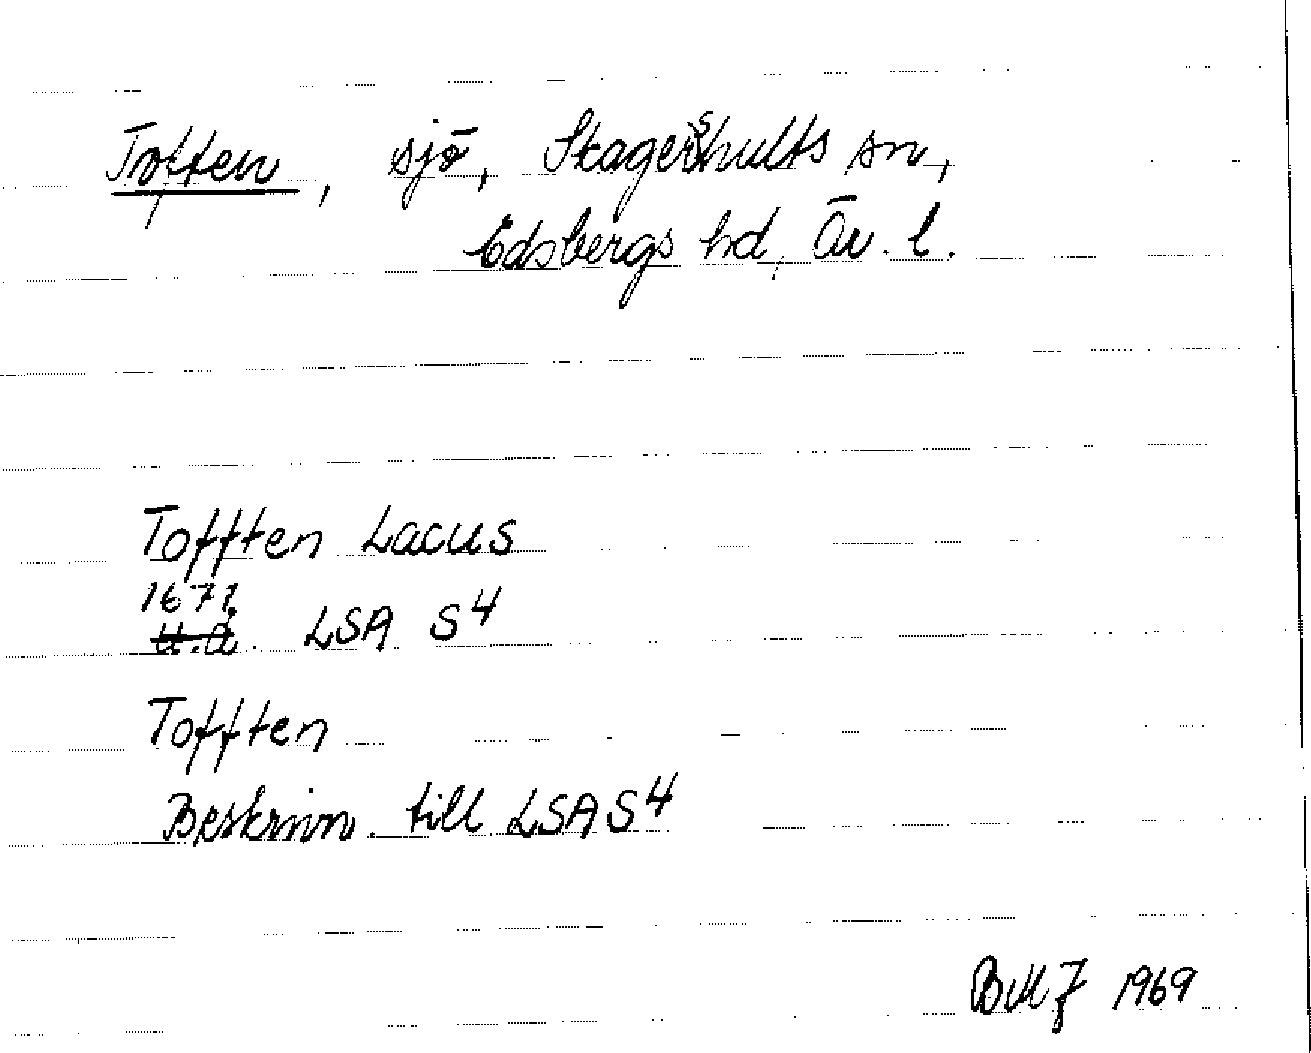 Toften, sjö, Skagershults sn,
Edsbergs hd, Ör. l.
Tofften Lacus
1671
u.å. LSA S4
Tofften
Beskrivn. till LSA S4
1969